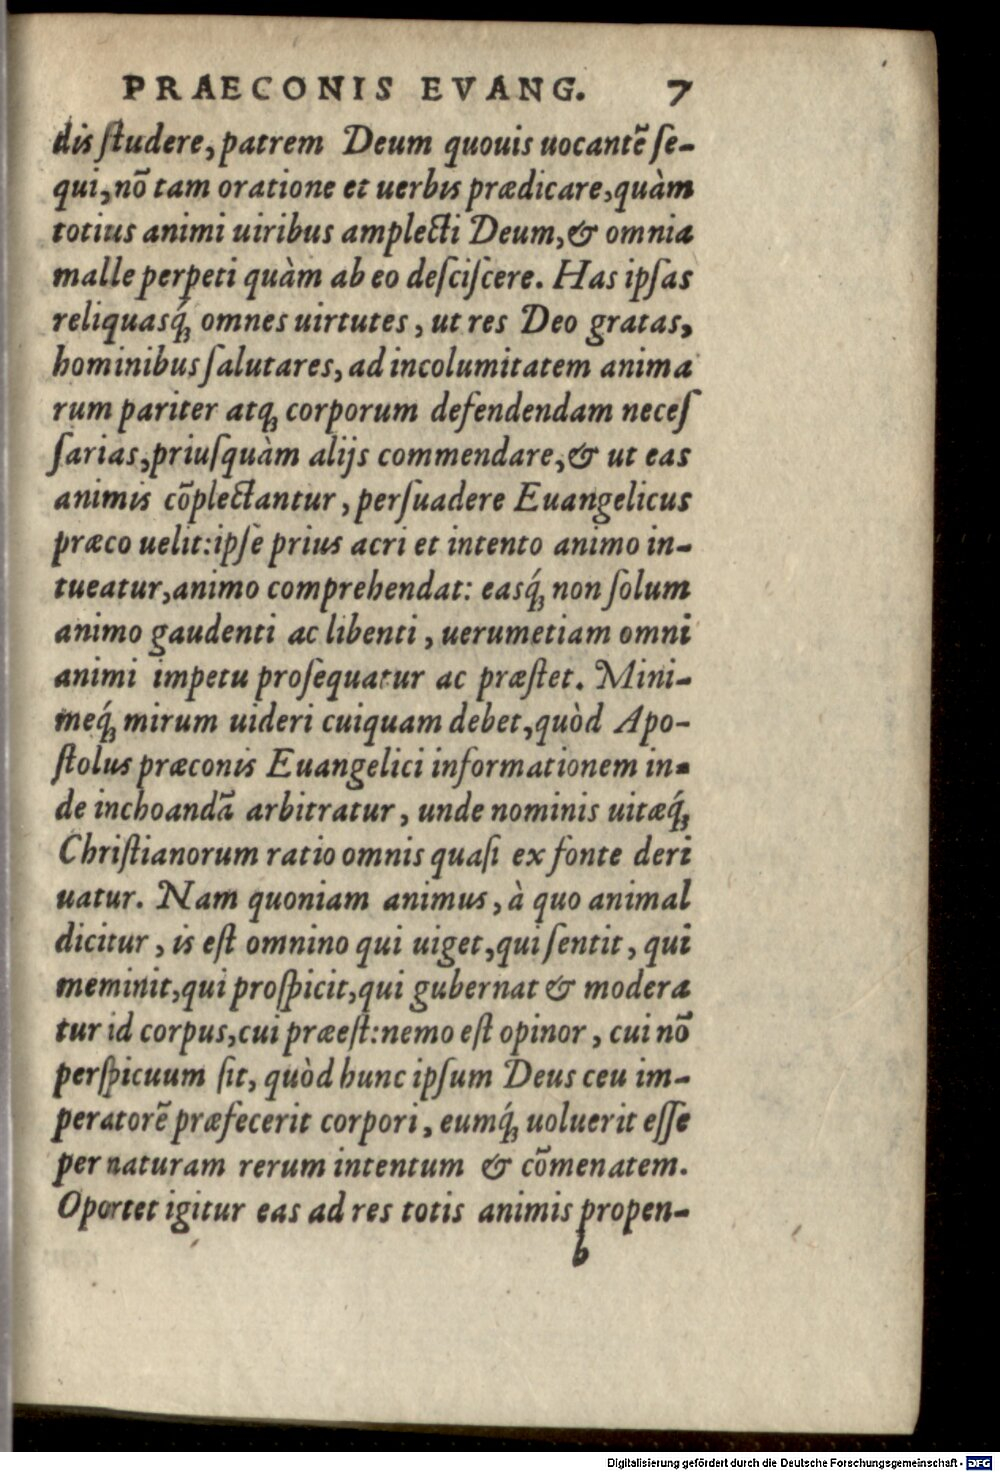 PRAECONIS EVANG. 7
dis ſtudere, patrem Deum quouis uocantẽ ſe-
qui, nõ tam oratione et uerbis prædicare, quàm
totius animi uiribus amplecti Deum, & omnia
malle perpeti quàm ab eo deſciſcere. Has ipſas
reliquasq́; omnes uirtutes, ut res Deo gratas,
hominibus ſalutares, ad incolumitatem anima
rum pariter atq; corporum defendendam neceſ
ſarias, priuſquàm alijs commendare, & ut eas
animis cõplectantur, perſuadere Euangelicus
præco uelit: ipſe prius acri et intento animo in-
tueatur, animo comprehendat: easq́; non ſolum
animo gaudenti ac libenti, uerumetiam omni
animi impetu proſequatur ac præſtet. Mini-
meq́; mirum uideri cuiquam debet, quòd Apo-
ſtolus præconis Euangelici informationem in-
de inchoandã arbitratur, unde nominis uitæq́;
Chriſtianorum ratio omnis quaſi ex fonte deri
uatur. Nam quoniam animus, à quo animal
dicitur, is eſt omnino qui uiget, qui ſentit, qui
meminit, qui proſpicit, qui gubernat & modera
tur id corpus, cui præeſt: nemo eſt opinor, cui nõ
perſpicuum ſit, quòd hunc ipſum Deus ceu im-
peratorẽ præfecerit corpori, eumq́; uoluerit eſſe
per naturam rerum intentum & cõmenatem.
Oportet igitur eas ad res totis animis propen-
b
Digitalisierung gefördert durch die Deutsche Forschungsgemeinschaft - DFG